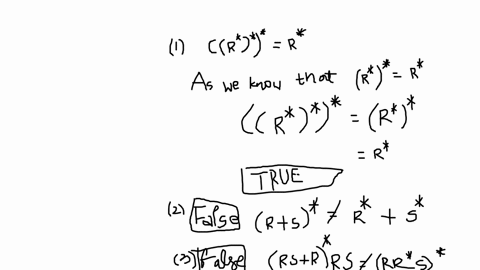 (1) ((R*)*)* = R*
As we know that (R*)* = R*
((R*)*)* = (R*)*
= R*
TRUE
(2) False (R+S)* ≠ R* + S*
(3) False (RS+R)* RS ≠ (RR*S)*